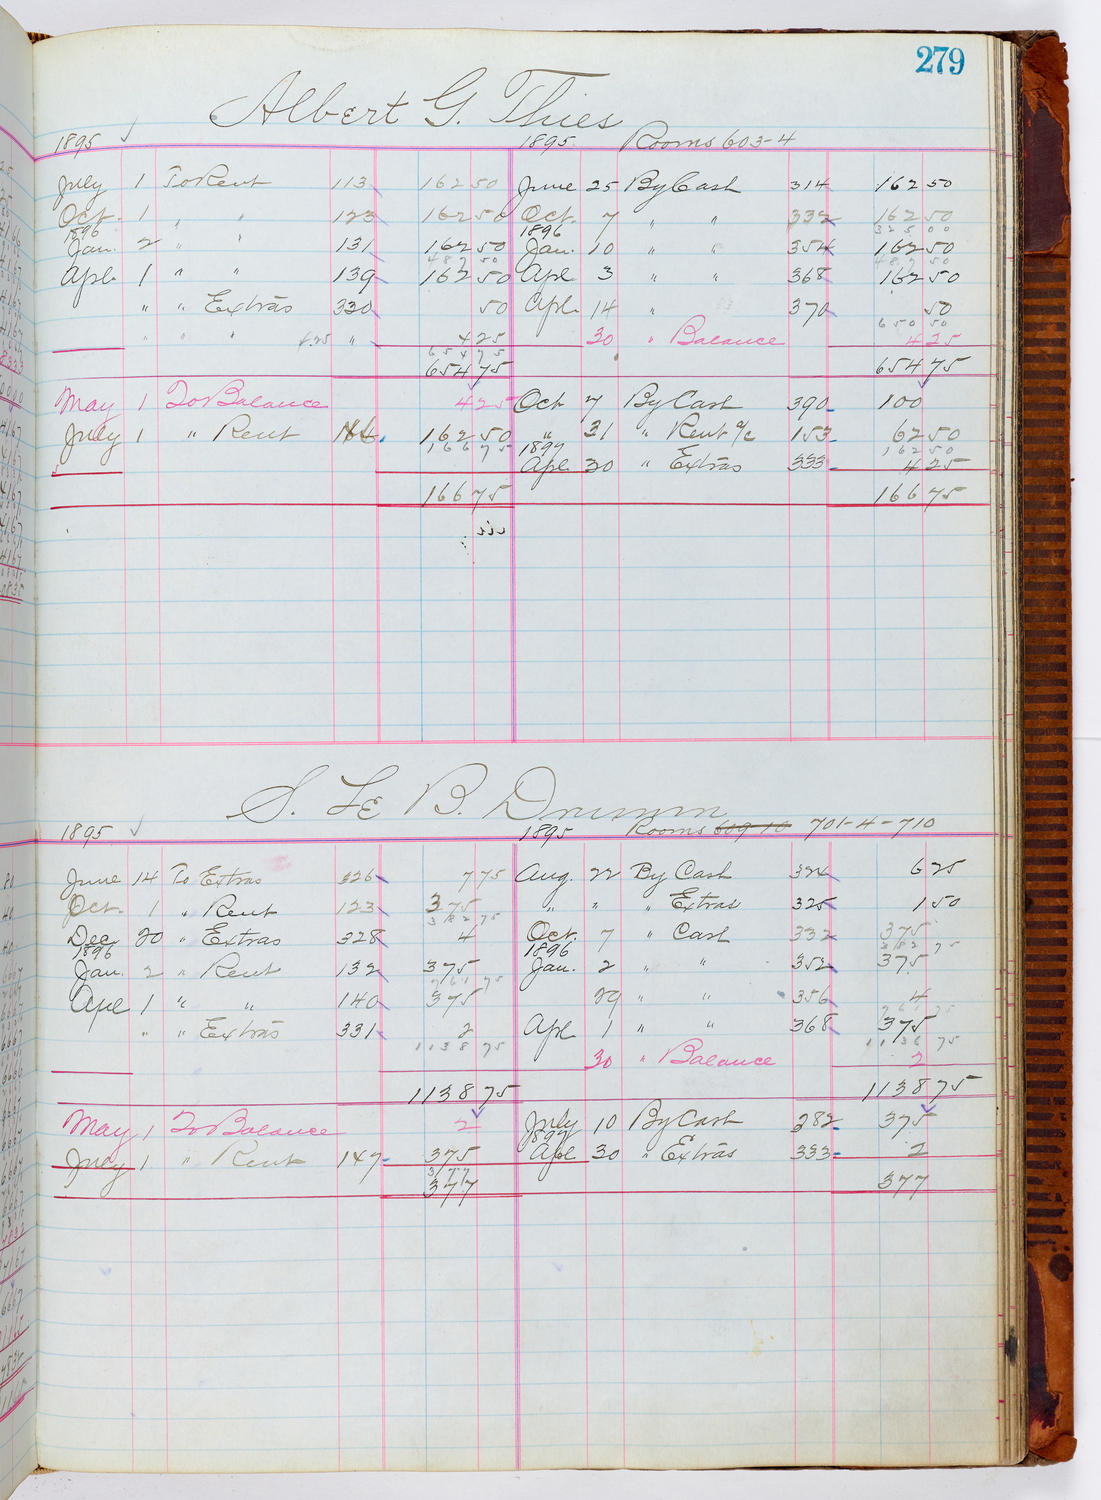 279
Albert G. Thies
1895 1895 Rooms 603-4
July 1 To Rent 113 162 50 June 25 By Cash 314 162 50
Oct. 1 " " 123 162 50 Oct. 7 " " 332 162 50
325 00
1896 1896
Jan. 2 " " 131 162 50 Jan. 10 " " 354 162 50
487 50 487 50
Apl. 1 " " 139 162 50 Apl. 3 " " 368 162 50
" " Extras 330 50 Apl. 14 " 370 50
650 50
" " " 4.25 " 4 25 30 " Balance 4 25
654 75
654 75 654 75
May 1 To Balance 4 25 Oct 7 By Cash 390 100
July 1 " Rent 162 50 " 31 " Rent a/c 153 62 50
166 75 1897 162 50
Apl. 30 " Extras 333 4 25
166 75 166 75
S. Le B. Drumm
1895 1895 Rooms 609-10 701-4-710
June 14 To Extras 326 7 75 Aug. 22 By Cash 324 6 25
Oct. 1 " Rent 123 375 " " " Extras 325 1 50
382 75
Dec. 20 " Extras 328 4 Oct. 7 " Cash 332 375
1896 1896 382 75
Jan. 2 " Rent 132 375 Jan. 2 " " 352 375
761 75
Apl 1 " " 140 375 29 " " 356 4
761 75
" " Extras 331 2 Apl 1 " " 368 375
1138 75 1136 75
30 " Balance 2
1138 75 1138 75
May 1 To Balance 2 July 10 By Cash 282 375
1897
July 1 " Rent 147 375 Apl 30 " Extras 333 2
377
377 377